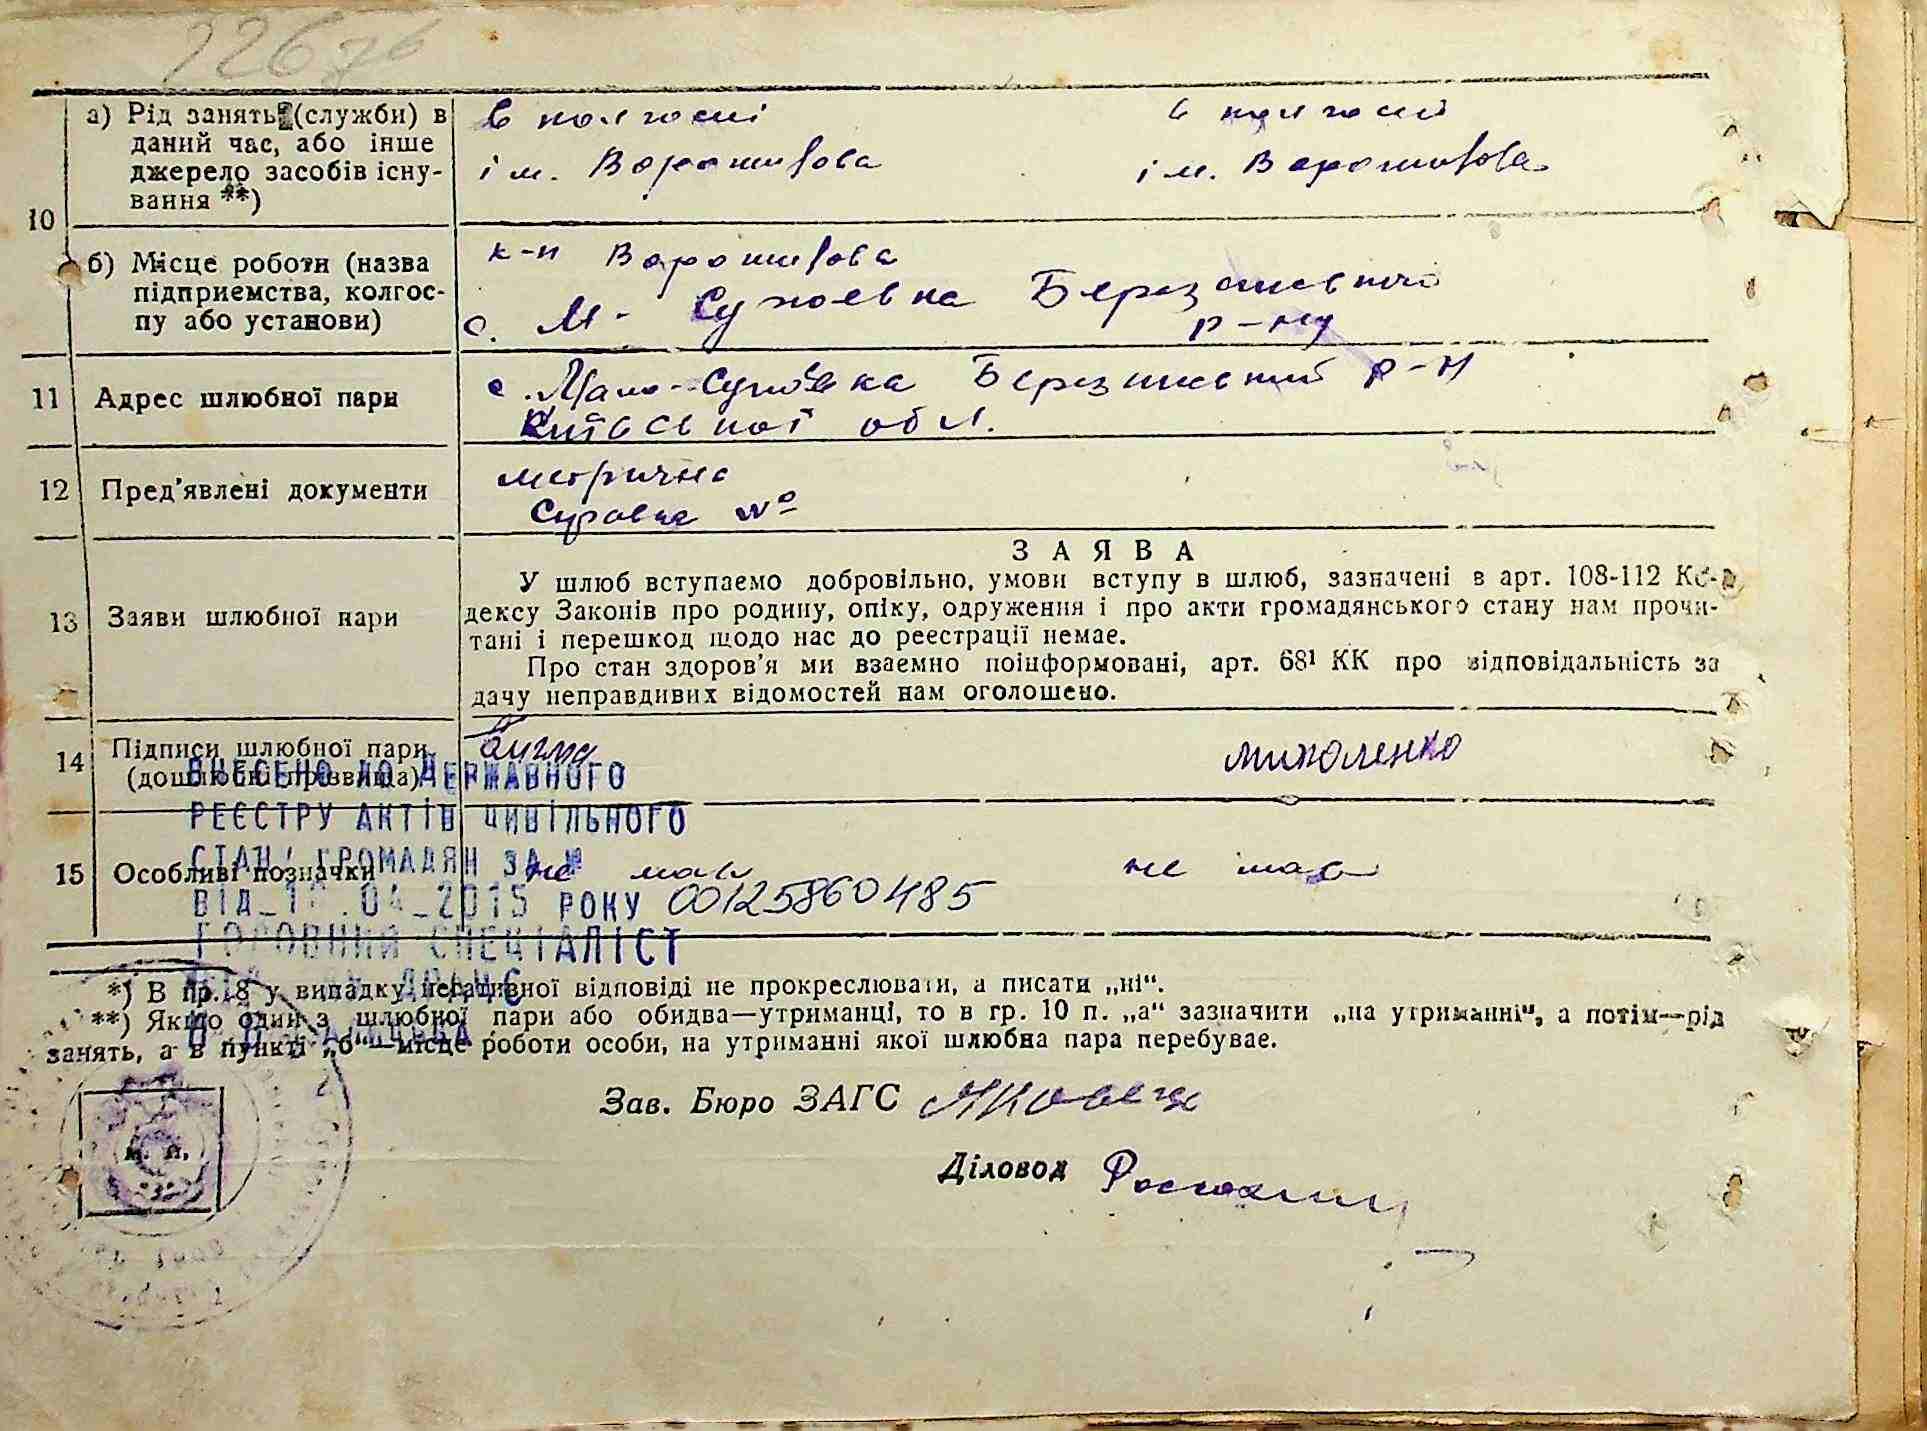 226
10
а) Рід занять (служби) в
даний час, або інше
джерело засобів існу-
вання **)
в колгоспі
ім. Ворошилова
в колгоспі
ім. Ворошилова
б) Місце роботи (назва
підприємства, колгос-
пу або установи)
к-п Ворошилова
с. М-Супоевка Березанский
р-ну
11
Адрес шлюбної пари
с. Мало-Супоївка Березанский р-н
Київської обл.
12
Пред'явлені документи
метрична
Справка №
13
Заяви шлюбної пари
ЗАЯВА
У шлюб вступаємо добровільно, умови вступу в шлюб, зазначені в арт. 108-112 Ко-
дексу Законів про родину, опіку, одруження і про акти громадянського стану нам прочи-
тані і перешкод щодо нас до реєстрації немає.
Про стан здоров'я ми взаємно поінформовані, арт. 68¹ КК про відповідальність за
дачу неправдивих відомостей нам оголошено.
14
Підписи шлюбної пари
(дошлюбні прізвища)
Миколенко
ВНЕСЕНО ДО ДЕРЖАВНОГО
РЕЄСТРУ АКТІВ ЦИВІЛЬНОГО
СТАНУ ГРОМАДЯН ЗА №
15
Особливі позначки
не має
не має
ВІД 04 2015 РОКУ 00125860485
ГОЛОВНИЙ СПЕЦІАЛІСТ
*) В пр. 8 у випадку негативної відповіді не прокреслювати, а писати „ні“.
**) Якщо один з шлюбної пари або обидва—утриманці, то в гр. 10 п. „а“ зазначити „на утриманні“, а потім—рід
занять, а в пункті „б“—місце роботи особи, на утриманні якої шлюбна пара перебуває.
Зав. Бюро ЗАГС
Діловод
м. п.